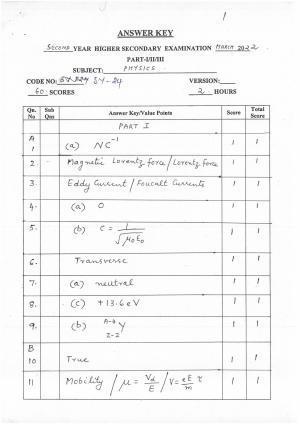 1
ANSWER KEY
SECOND YEAR HIGHER SECONDARY EXAMINATION MARCH 2022
PART-I/II/III
SUBJECT: PHYSICS
CODE NO: SY-24 VERSION:
60 SCORES 2 HOURS
Qn. No Sub Qns Answer Key/Value Points Score Total Score
PART I
A
1 (a) NC⁻¹ 1 1
2. Magnetic Lorentz force / Lorentz Force 1 1
3. Eddy Current / Foucalt Currents 1 1
4. (a) 0 1 1
5. (b) C = 1/√μ₀ε₀ 1 1
6. Transverse 1 1
7. (a) neutral 1 1
8. (c) +13.6 eV 1 1
9. (b) A-4 Z-2 Y 1 1
B
10 True 1 1
11 Mobility / μ = Vd/E / V = eE/m τ 1 1